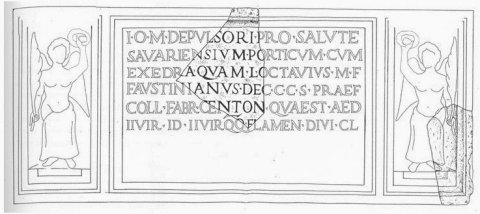 I·O·M·DEPVLSORI·PRO·SALVTE
SAVARIENSIVM·PORTICVM·CVM
EXEDRA QVAM·L·OCTAVIVS·M·F
FAVSTINIANVS·DEC·C·C·S·PRAEF
COLL·FABR·CENTON·QVAEST·AED
IIVIR·ID·IIVIR QQ FLAMEN·DIVI·CL